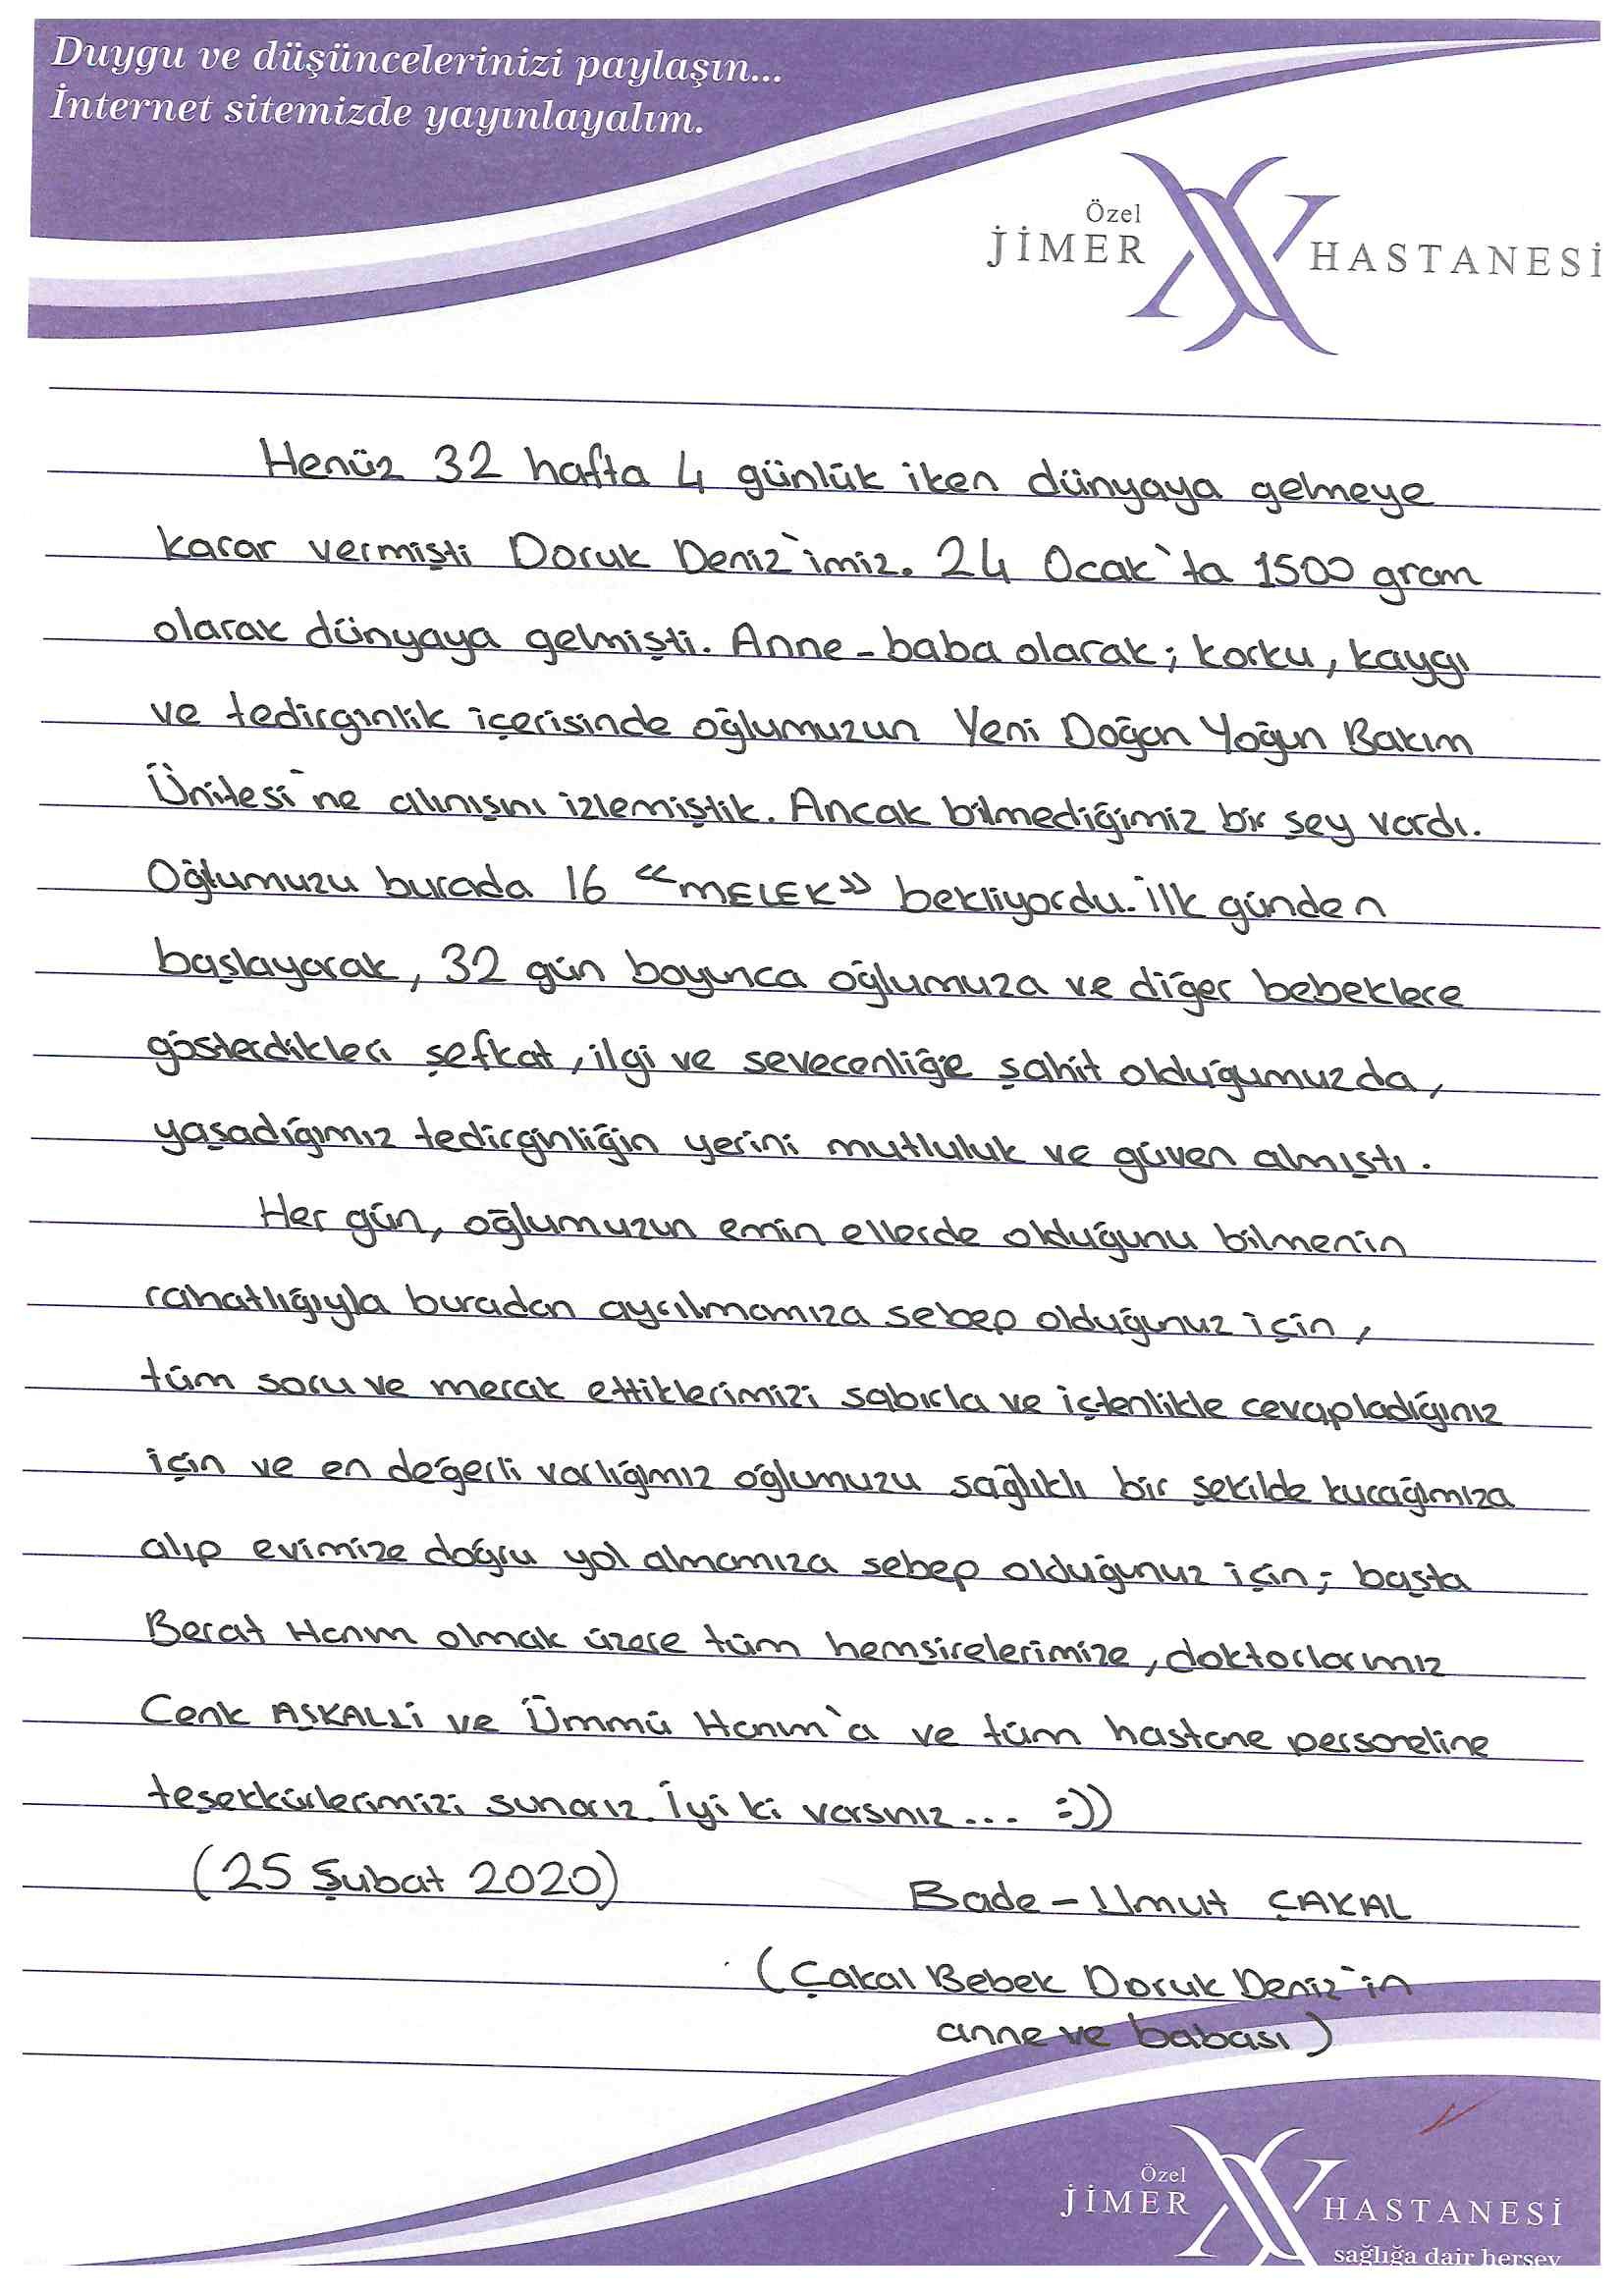 Duygu ve düşüncelerinizi paylaşın...
İnternet sitemizde yayınlayalım.
Özel
JİMER HASTANESİ
Henüz 32 hafta 4 günlük iken dünyaya gelmeye
karar vermişti Doruk Deniz'imiz. 24 Ocak'ta 1500 gram
olarak dünyaya gelmişti. Anne-baba olarak; korku, kaygı
ve tedirginlik içerisinde oğlumuzun Yeni Doğan Yoğun Bakım
Ünitesi'ne alınışını izlemiştik. Ancak bilmediğimiz bir şey vardı.
Oğlumuzu burada 16 "MELEK" bekliyordu. İlk günden
başlayarak, 32 gün boyunca oğlumuza ve diğer bebeklere
gösterdikleri şefkat, ilgi ve sevecenliğe şahit olduğumuzda,
yaşadığımız tedirginliğin yerini mutluluk ve güven almıştı.
Her gün, oğlumuzun emin ellerde olduğunu bilmenin
rahatlığıyla buradan ayrılmamıza sebep olduğunuz için,
tüm soru ve merak ettiklerimizi sabırla ve içtenlikle cevapladığınız
için ve en değerli varlığımız oğlumuzu sağlıklı bir şekilde kucağımıza
alıp evimize doğru yol almamıza sebep olduğunuz için; başta
Berat Hanım olmak üzere tüm hemşirelerimize, doktorlarımız
Cenk AŞKALLİ ve Ümmü Hanım'a ve tüm hastane personeline
teşekkürlerimizi sunarız. İyi ki varsınız... :))
(25 Şubat 2020)
Bade - Umut ÇAKAL
(Çakal Bebek Doruk Deniz'in
anne ve babası)
Özel
JİMER HASTANESİ
sağlığa dair herşey